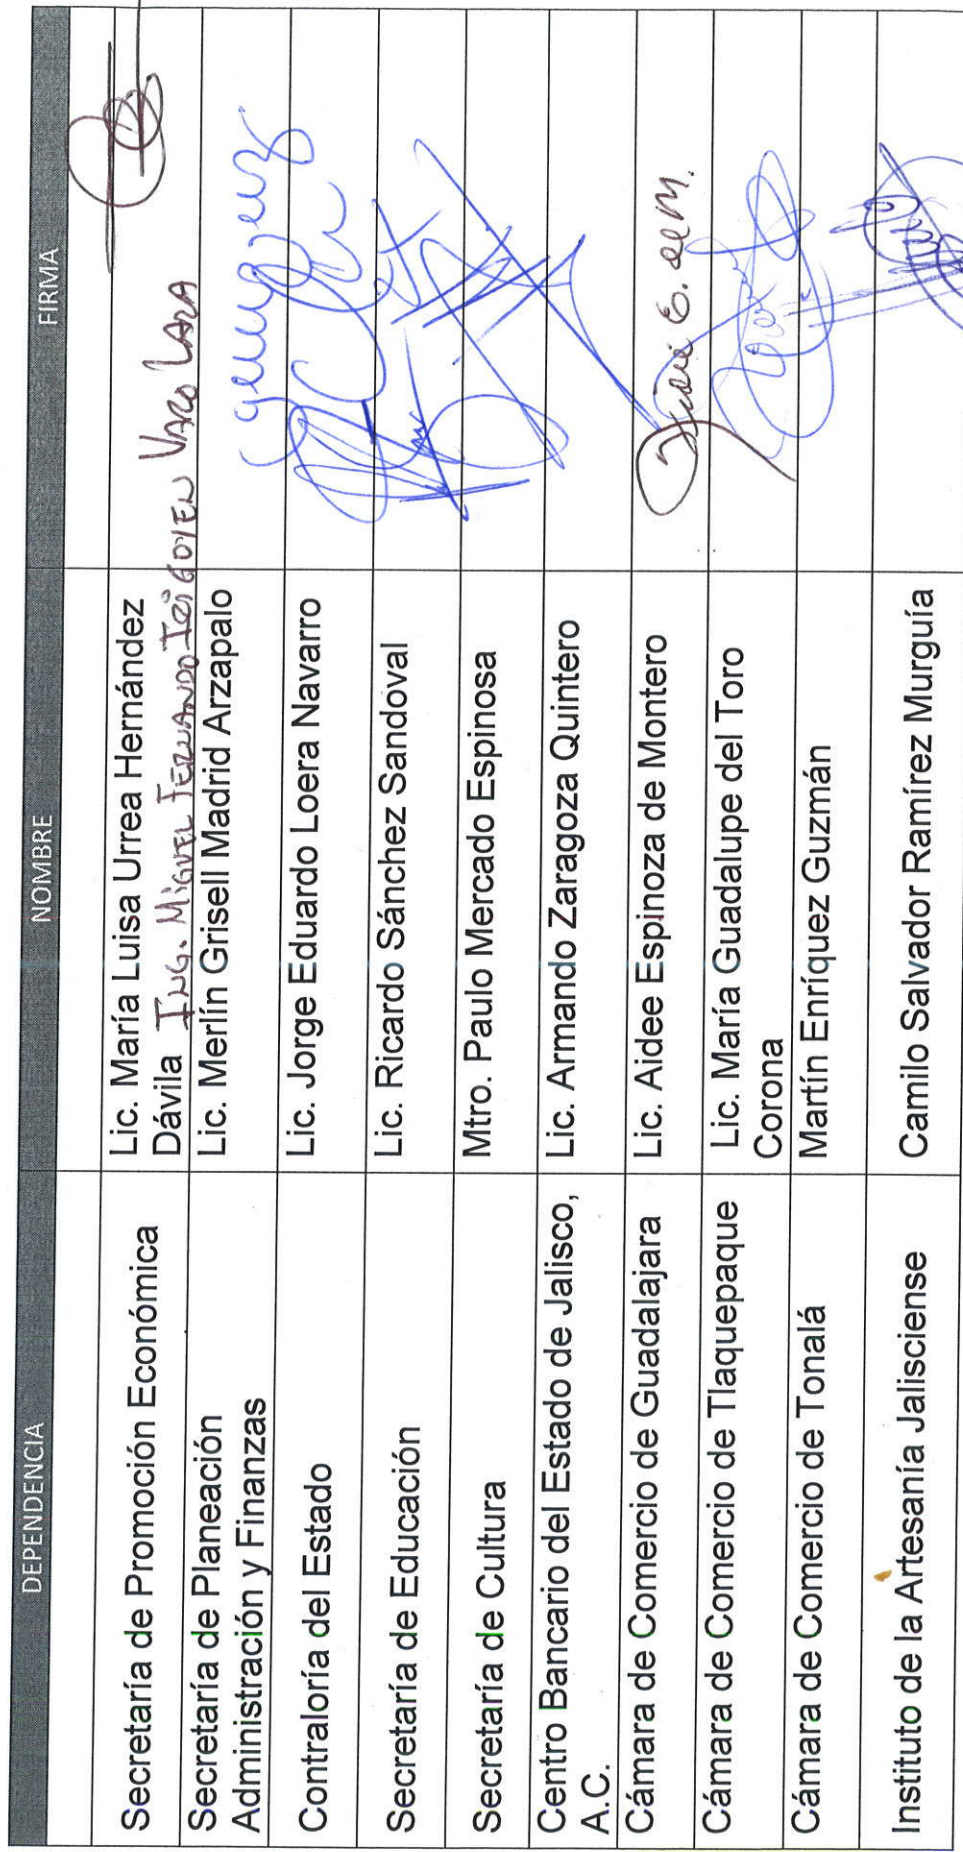 DEPENDENCIA NOMBRE FIRMA
Secretaría de Promoción Económica
Lic. María Luisa Urrea Hernández
Dávila
ING. MIGUEL FERNANDO LARA
Secretaría de Planeación
Administración y Finanzas
Lic. Merlín Grisell Madrid Arzapalo
Contraloría del Estado
Lic. Jorge Eduardo Loera Navarro
Secretaría de Educación
Lic. Ricardo Sánchez Sandoval
Secretaría de Cultura
Mtro. Paulo Mercado Espinosa
Centro Bancario del Estado de Jalisco,
A.C.
Lic. Armando Zaragoza Quintero
Cámara de Comercio de Guadalajara
Lic. Aidee Espinoza de Montero
E. de M.
Cámara de Comercio de Tlaquepaque
Lic. María Guadalupe del Toro
Corona
Cámara de Comercio de Tonalá
Martín Enríquez Guzmán
Instituto de la Artesanía Jalisciense
Camilo Salvador Ramírez Murguía